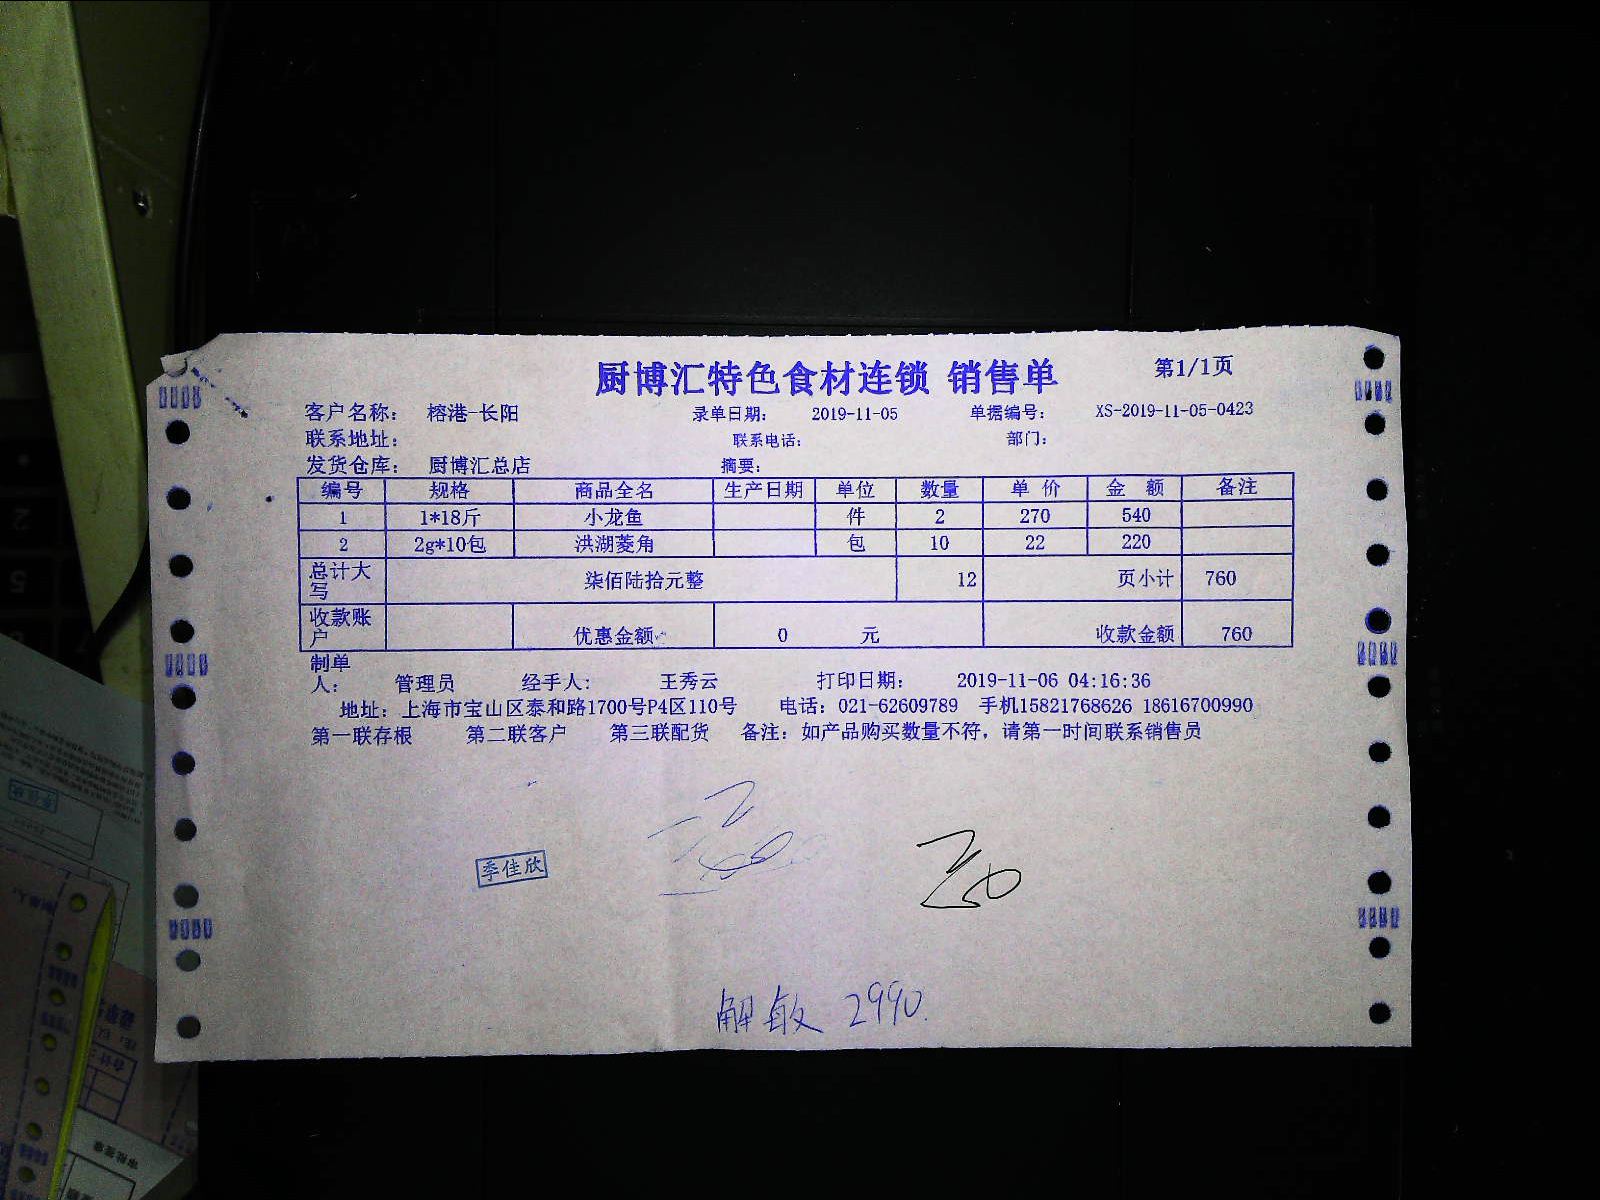 厨博汇特色食材连锁 销售单 第1/1页
客户名称： 榕港-长阳 录单日期： 2019-11-05 单据编号： XS-2019-11-05-0423
联系地址： 联系电话： 部门：
发货仓库： 厨博汇总店 摘要：
编号 规格 商品全名 生产日期 单位 数量 单 价 金 额 备注
1 1*18斤 小龙鱼 件 2 270 540
2 2g*10包 洪湖菱角 包 10 22 220
总计大写 柒佰陆拾元整 12 页小计 760
收款账户 优惠金额 0 元 收款金额 760
制单人： 管理员 经手人： 王秀云 打印日期： 2019-11-06 04:16:36
地址：上海市宝山区泰和路1700号P4区110号 电话：021-62609789 手机15821768626 18616700990
第一联存根 第二联客户 第三联配货 备注：如产品购买数量不符，请第一时间联系销售员
季佳欣
解敏 2990.